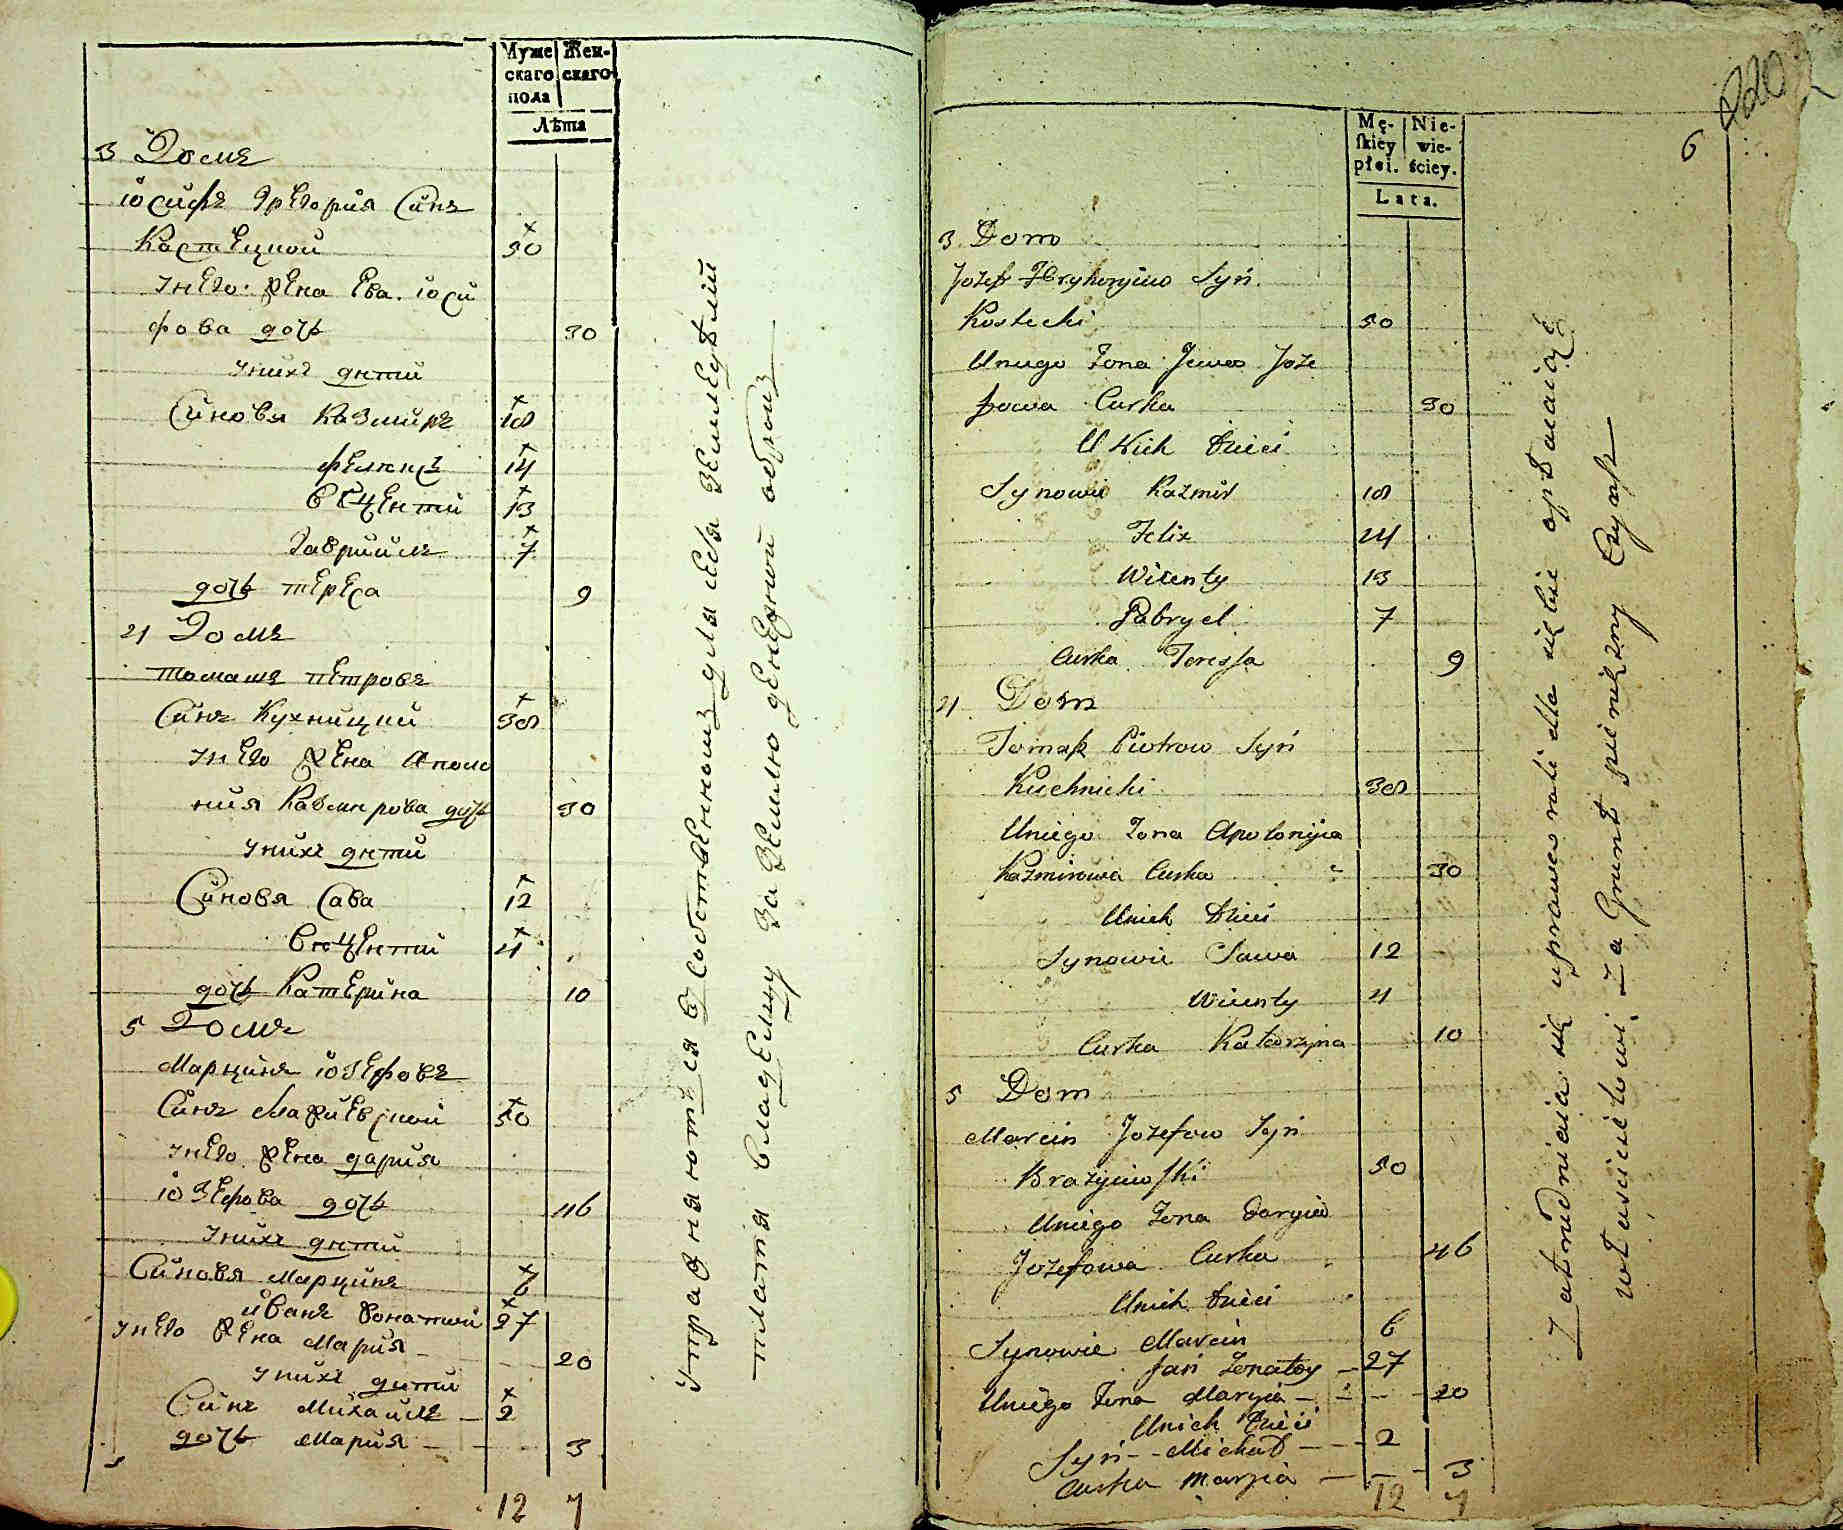 Муже Жен-
скаго скаго
пола
Лѣта
3 Домъ
іосифъ Григорія Синъ
Костецкой 50
унего жена Ева іоси
фова дочь 30
унихъ дѣти
Синовя Казмиръ 18
феликсъ 14
Вѣцентий 13
Гаврийлъ 7
дочь тереса 9
4 Домъ
томашъ петровъ
Синъ Кухницкий 38
унего жена Аполо
ния Казмирова дочь 30
унихъ дѣти
Синовя Сава 12
Вѣцентий 4
дочь Катерина 10
5 Домъ
Марцинъ іозефовъ
Синъ 50
унего жена дария
іозефова дочь 46
унихъ дѣти
Синовя Марцинъ 6
йванъ жонатий 27
унего жена Мария 20
унихъ дѣти
Синъ Михайлъ 2
дочь Мария 3
12 7
упражняются в собственномъ для себя земледѣлій
платя владельцу за землю денежный оброкъ
Mę- Nie-
skiey wie-
płci. ściey.
Lata.
6
3 Dom
Jozef Hryhoryiow Syń
Kostecki 50
Uniego Żona Jewa Joze
fowa Curka 30
U Nich Dzieci
Synowie Kazmir 18
Felix 14
Wicenty 13
Gabryel 7
Curka Teressa 9
4 Dom
Tomasz Piotrow Syń
Kuchnicki 38
Uniego Żona Apolonija
Kazmirowa Curka 30
Unich Dzieci
Synowie Sawa 12
Wicenty 4
Curka Katarzyna 10
5 Dom
Marcin Jozefow Syń
50
Uniego Żona Daryia
Jozefowa Curka 46
Unich Dzieci
Synowie Marcin 6
Jań Żonatey 27
Uniego Żona Maryia 20
Unich Dzieci
Syń Michał 2
Curka Maryia 3
12 7
Zatrudniaią się uprawą roli dla siebie opłacaiąc
włascicielowi za Grunt pieniężny Czynsz